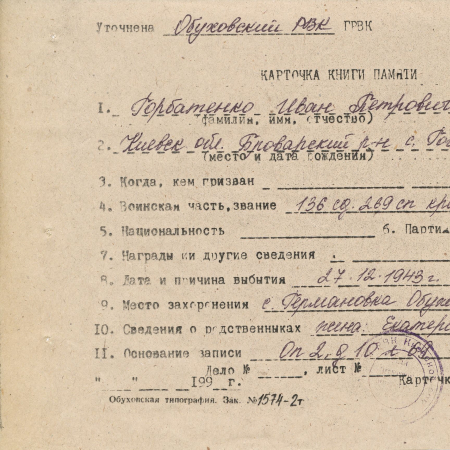 Уточнена Обуховский РВК ГРВК
КАРТОЧКА КНИГИ ПАМЯТИ
1. Горбатенко Иван Петрович
(фамилия, имя, отчество)
2. Киевск обл. Броварский р-н с. Го
(место и дата рождения)
3. Когда, кем призван
4. Воинская часть, звание 136 сд. 269 сп кр
5. Национальность 6. Парти
7. Награды и другие сведения
8. Дата и причина выбытия 27.12.1943 г.
9. Место захоронения с. Германовка Обух
10. Сведения о родственниках жена: Екатер
11. Основание записи Оп 2, д 10
Дело № , лист №
" " 199 г. Карточк
Обуховская типография. Зак. №1574-2т